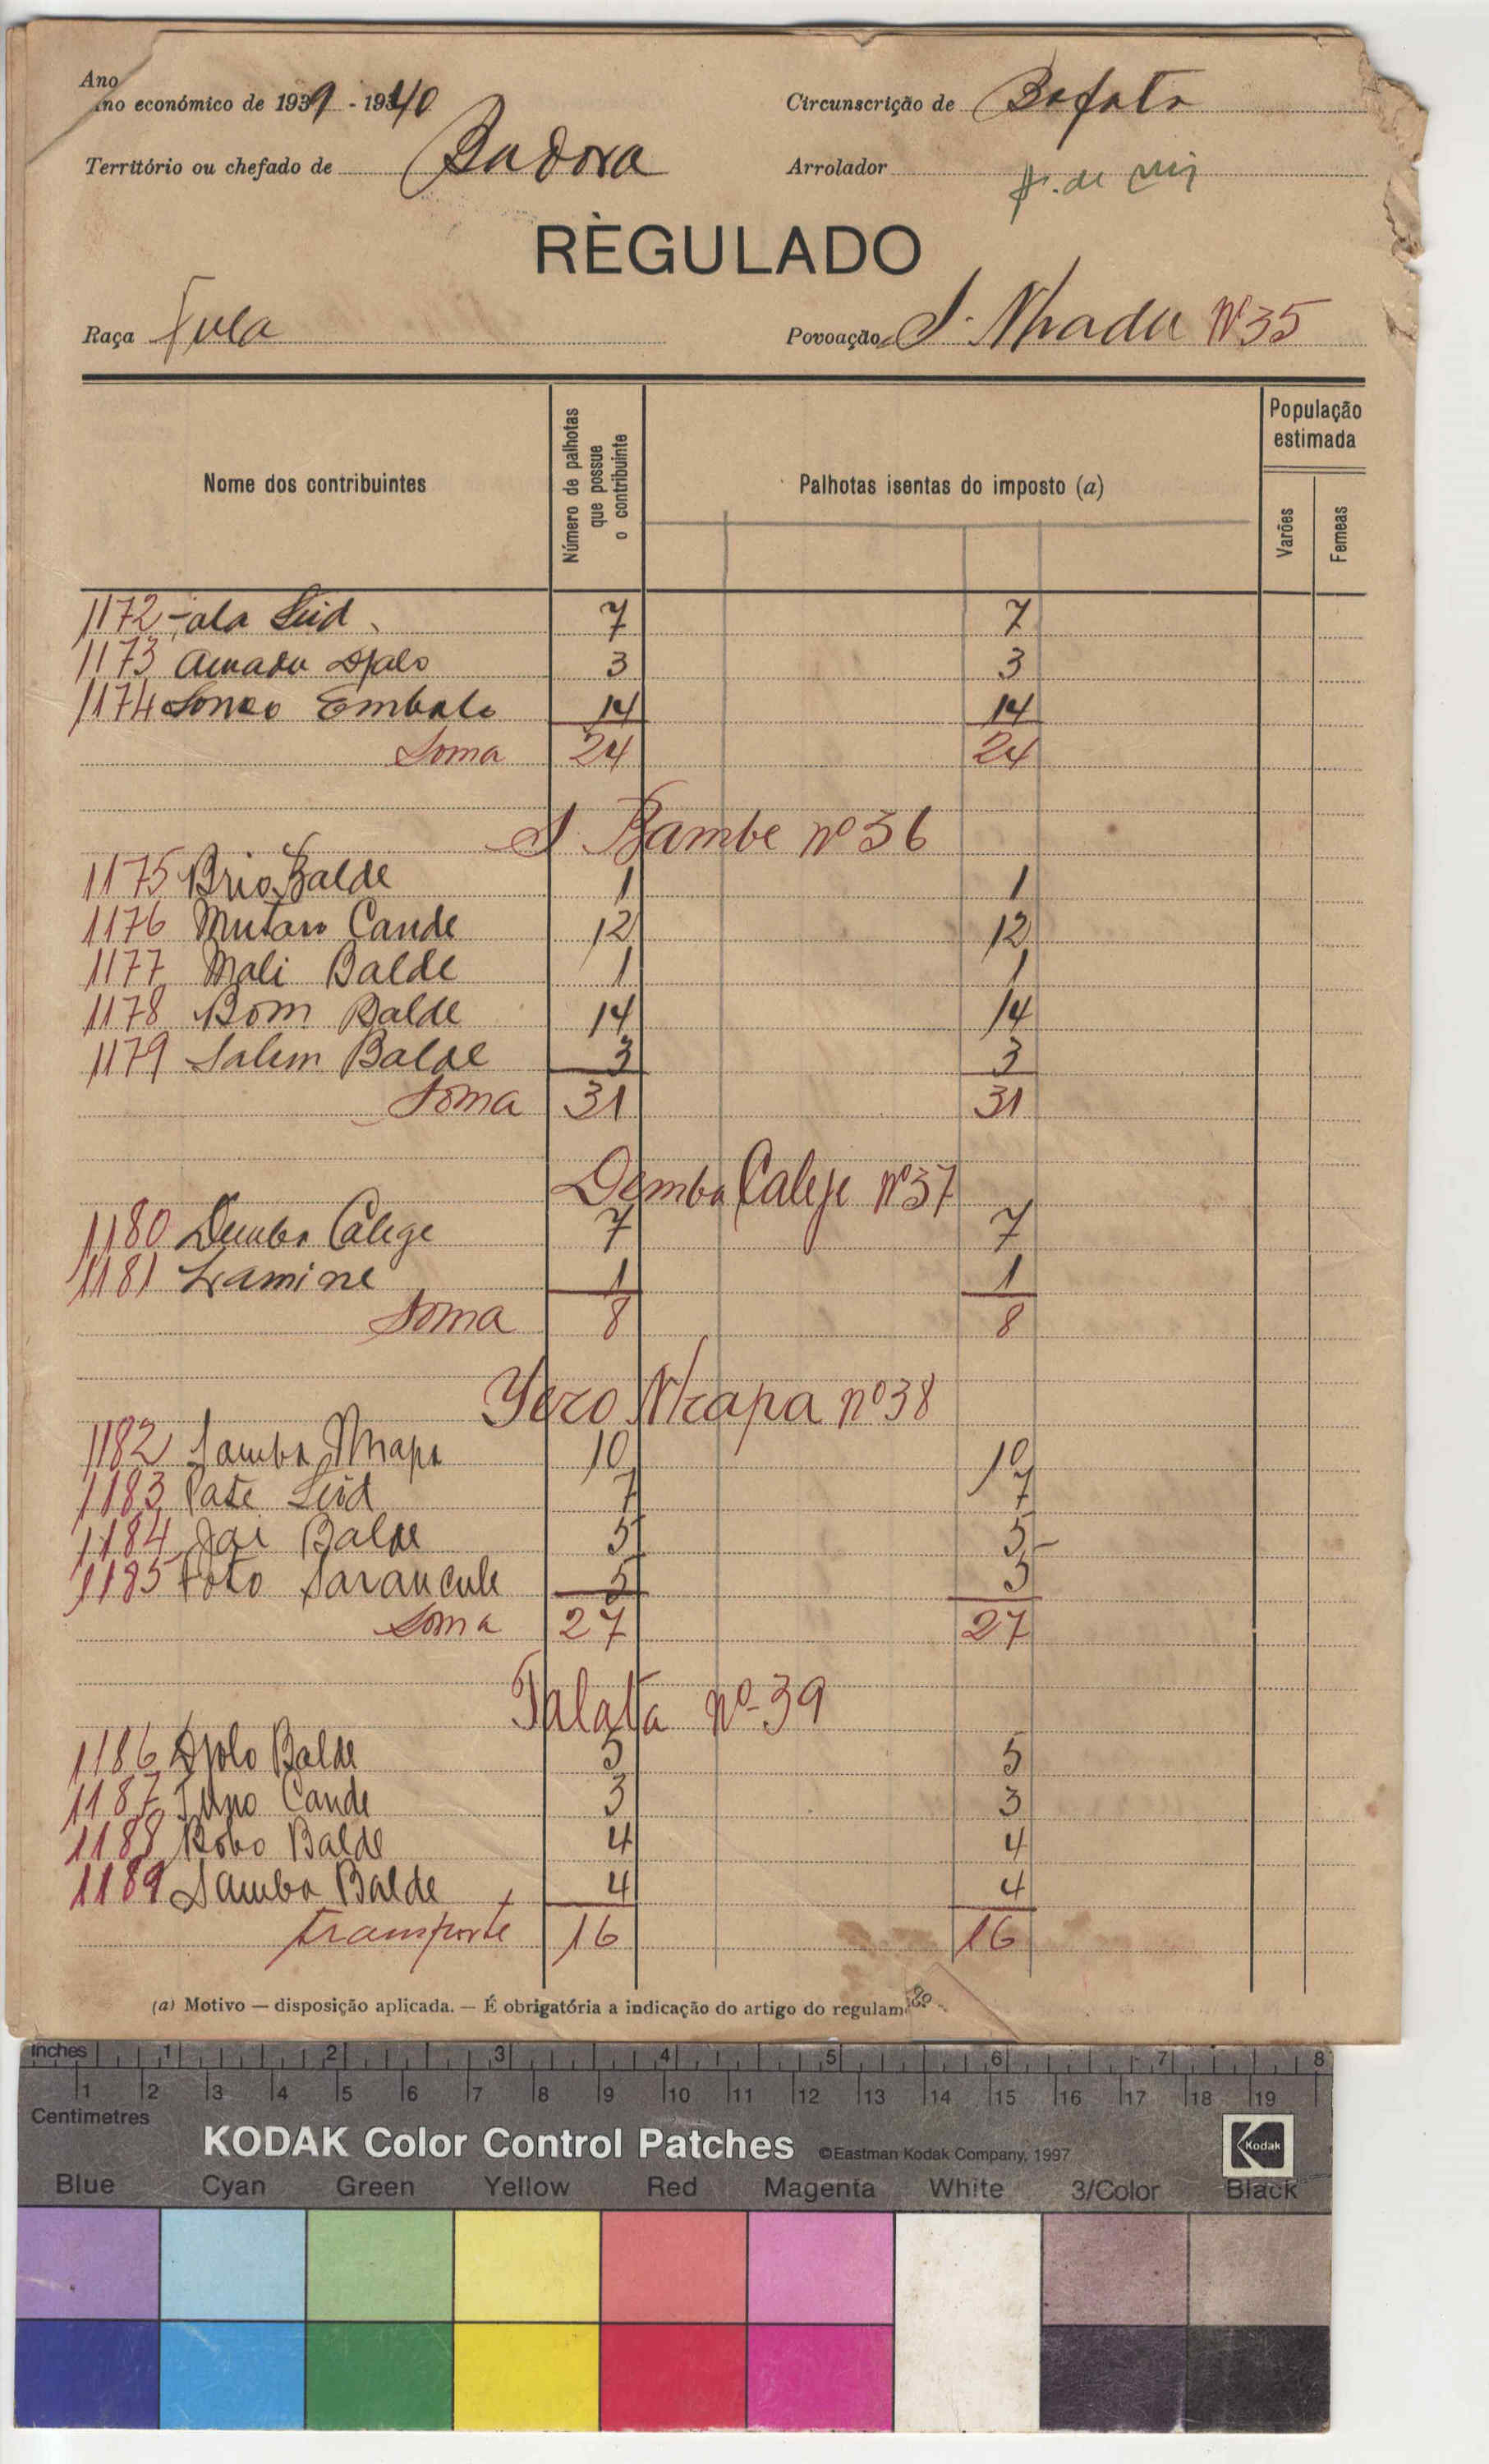 Ano
Ano económico de 1939 - 1940 Circunscrição de Bafata
Território ou chefado de Badora Arrolador
RÈGULADO
Raça Fula Povoação S. Nhadu Nº 35
Nome dos contribuintes Número de palhotas que possue o contribuinte Palhotas isentas do imposto (a) População estimada
Varões Femeas
1172 7 7
1173 Amadu Djalo 3 3
1174 Embalo 14 14
Soma 24 24
S. Bambe nº 36
1175 Brio Balde 1 1
1176 Mutaro Cande 12 12
1177 Mali Balde 1 1
1178 Bom Balde 14 14
1179 Salim Balde 3 3
Soma 31 31
Demba Calege Nº 37
1180 Demba Calege 7 7
1181 Lamine 1 1
Soma 8 8
Yero Nhapa nº 38
1182 Samba Nhapa 10 10
1183 Pate Seid 7 7
1184 Jai Balde 5 5
1185 Toto Sarancule 5 5
Soma 27 27
Talata nº 39
1186 Djolo Balde 5 5
1187 Cande 3 3
1188 Bobo Balde 4 4
1189 Samba Balde 4 4
transporte 16 16
(a) Motivo — disposição aplicada. — É obrigatória a indicação do artigo do regulam
inches 1 2 3 4 5 6 7 8
1 2 3 4 5 6 7 8 9 10 11 12 13 14 15 16 17 18 19
Centimetres
KODAK Color Control Patches ©Eastman Kodak Company, 1997 Kodak
Blue Cyan Green Yellow Red Magenta White 3/Color Black